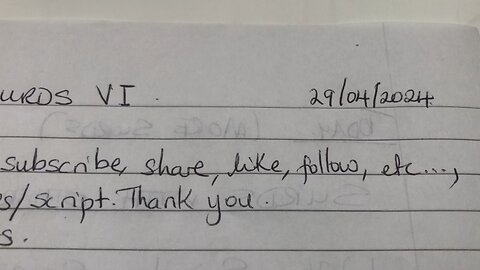 URDS VI. 29/04/2024
subscribe, share, like, follow, etc...,
s/script. Thank you.
s.